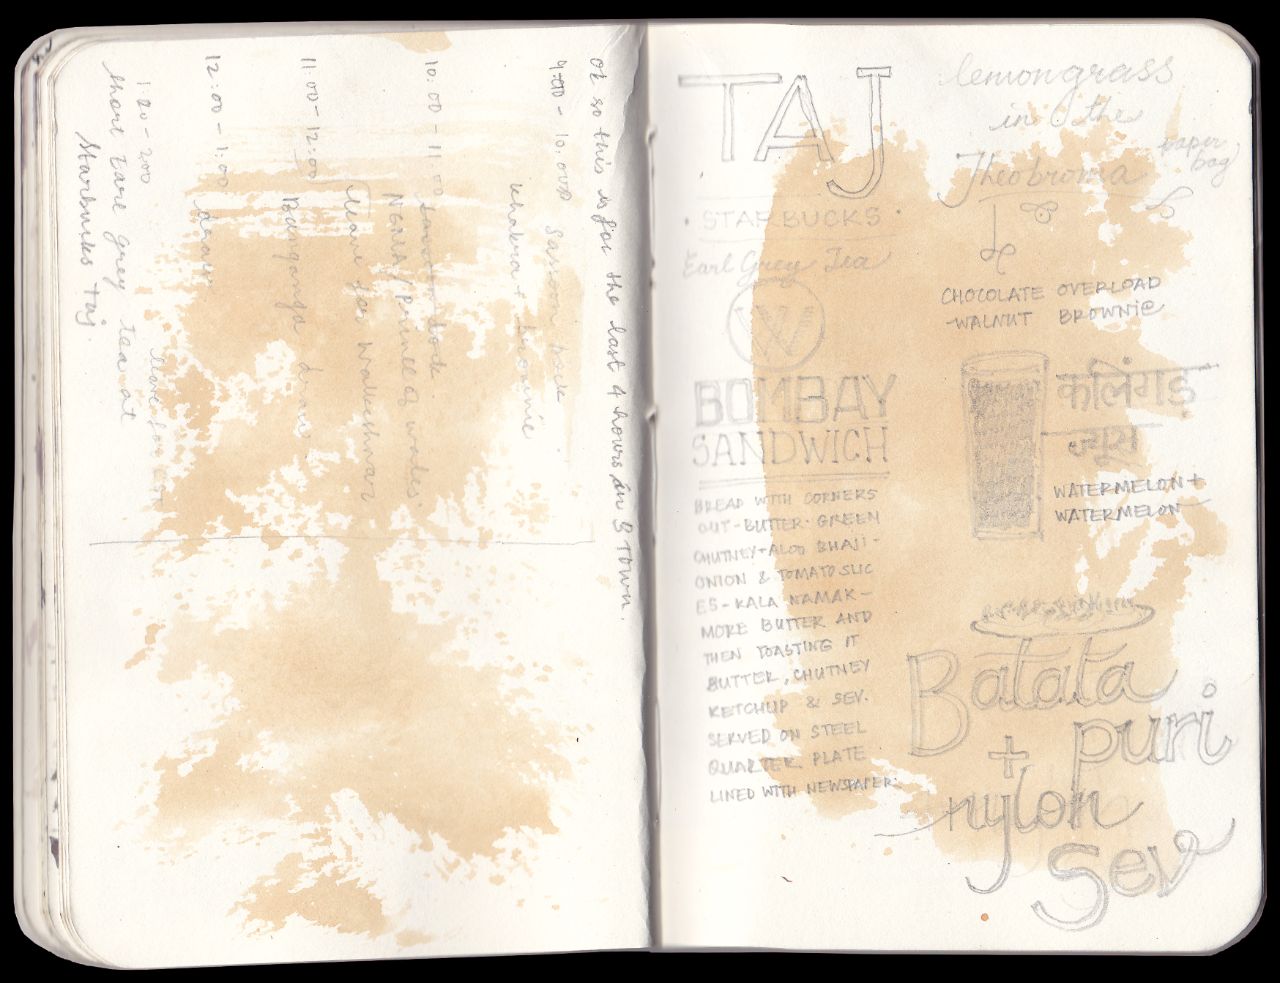 Ok so this is for the last 4 hours in S Town.
9:00 - 10:00 Sassoon
khakra + brownie
10:00 - 11:00
NGMA / Prince of Wales
11:00 - 12:00 Banganga
Walkeshwar
12:00 - 1:00 draw
1:00 - 2:00
short tare grey tea at
Starbucks Taj
TAJ
• STARBUCKS •
Earl Grey Tea
W
BOMBAY
SANDWICH
BREAD WITH CORNERS
CUT - BUTTER - GREEN
CHUTNEY + ALOO BHAJI -
ONION & TOMATO SLIC
ES - KALA NAMAK -
MORE BUTTER AND
THEN TOASTING IT
BUTTER, CHUTNEY
KETCHUP & SEV.
SERVED ON STEEL
QUARTER PLATE
LINED WITH NEWSPAPER.
lemongrass
in the
paper
bag
Theobroma
CHOCOLATE OVERLOAD
WALNUT BROWNIE
कलिंगड
ज्यूस
WATERMELON +
WATERMELON
Batata
puri
+
nylon
Sev